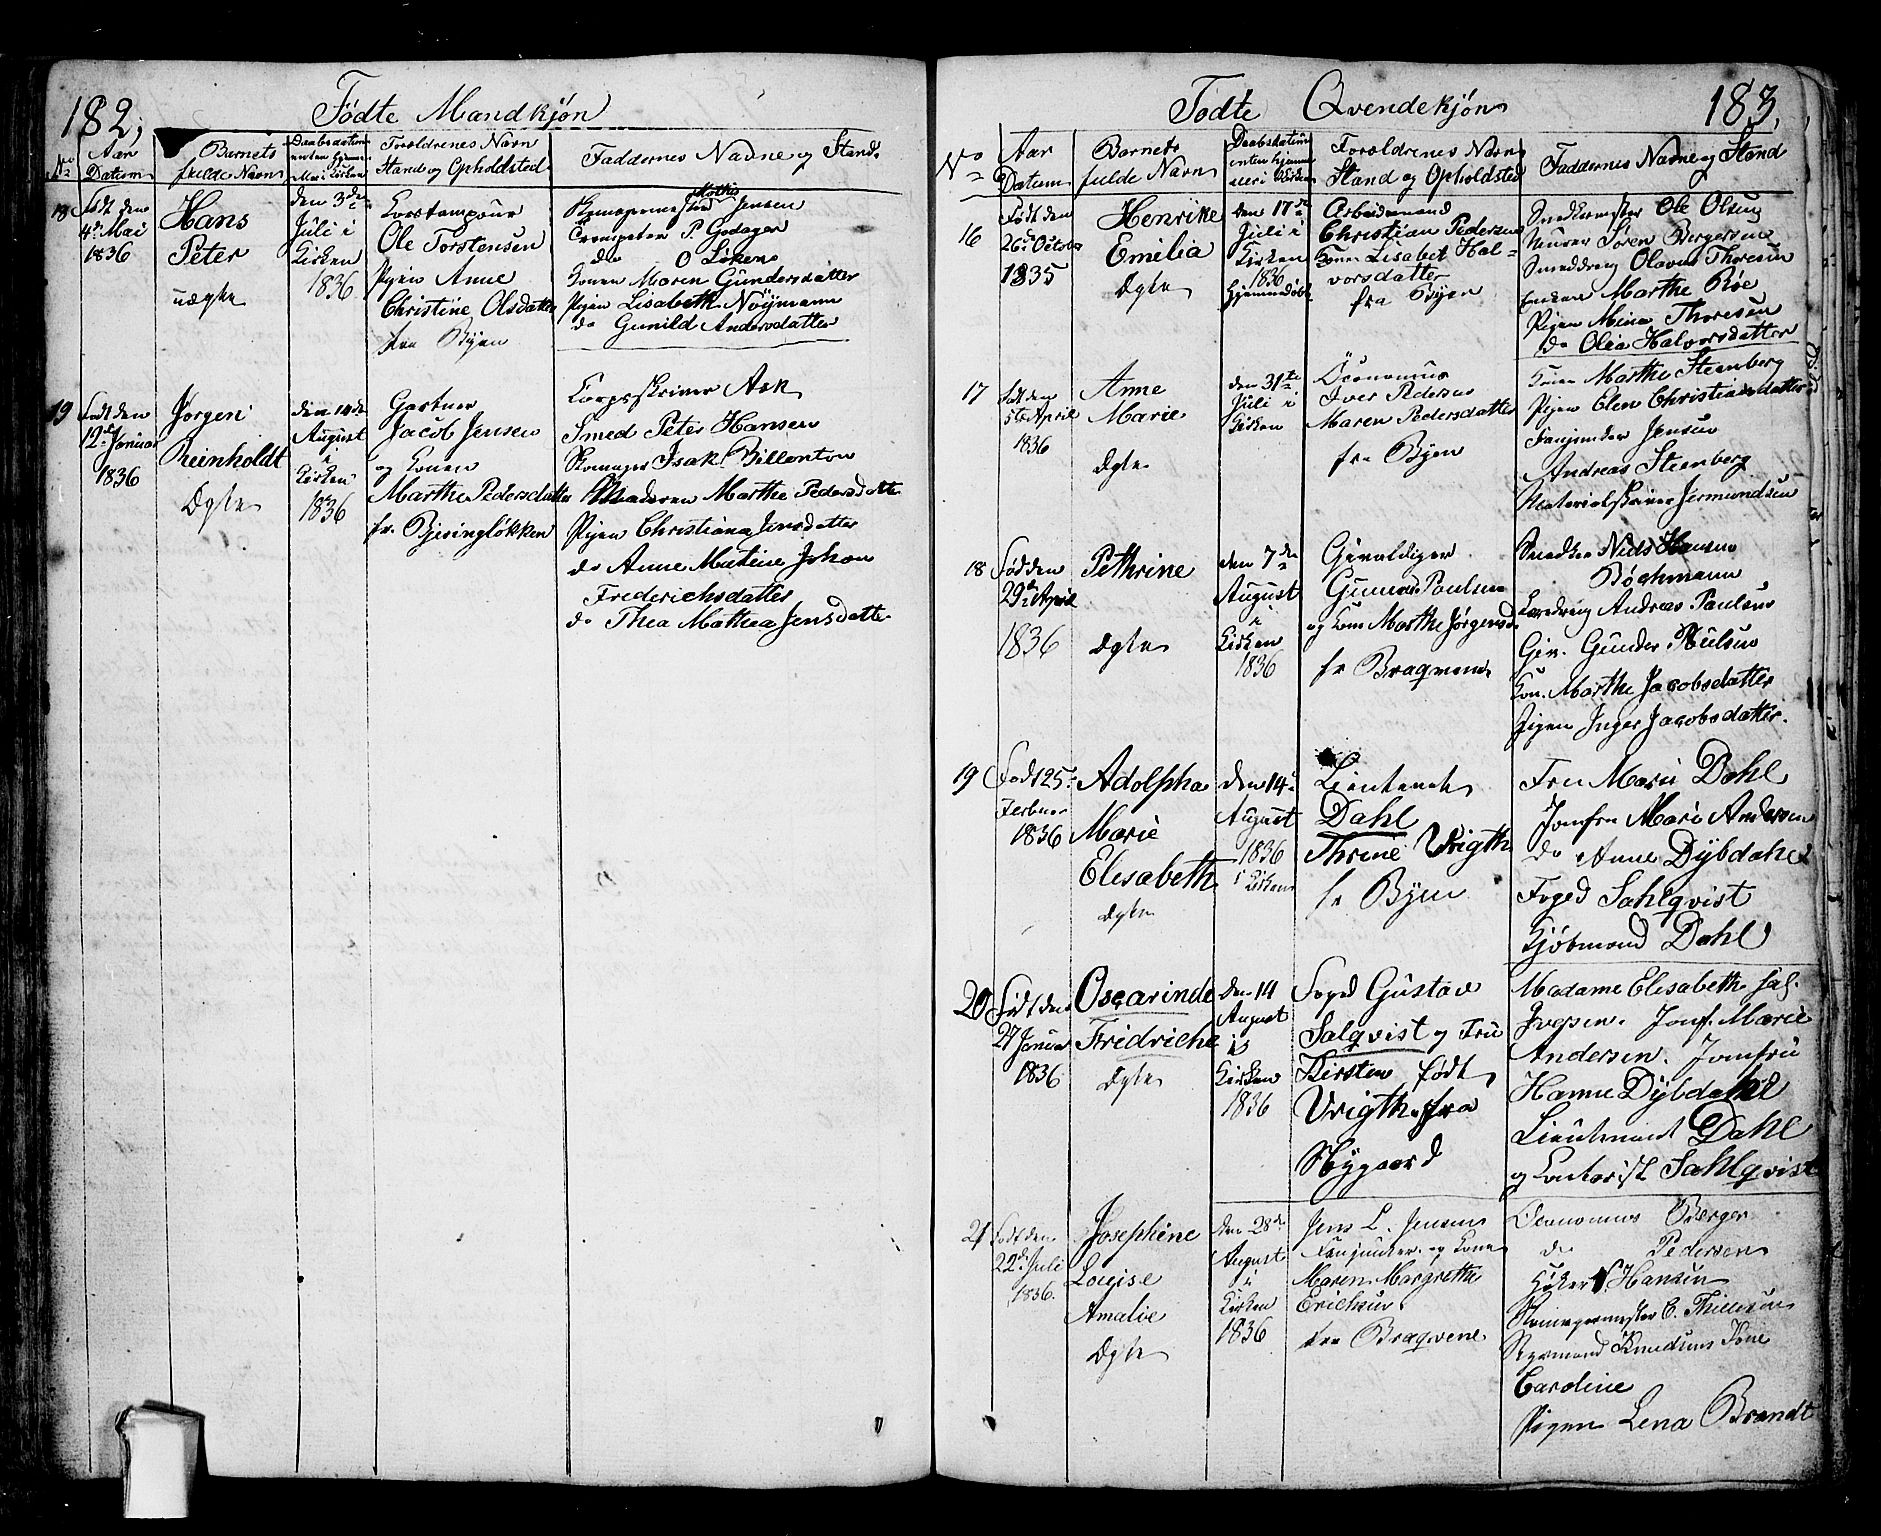 182,
Fødte Mandkjøn
No
Aar
Datum
Barnets
fulde Navn
Daabsdatum
enten hjemme
eller i Kirken
Forældrenes Navn
Stand og Opholdsted
Faddernes Navne og Stand
18
Født den
4de Mai
1836
Hans
Peter
uægte
den 3die
Juli i
Kirken
1836
Ole Torstensen
Pigen Anne
Christine Olsdatter
fra Byen
Mathis
Jensen
P. Godager
do O Løken
Konen Maren Gundersdatter
Pigen Lisabeth Nøÿmann
do Gunild Andersdatter
19
Født den
12te Januar
1836
Jørgen
Reinholdt
Ægte
den 14de
August
i
Kirken
1836
Gartner
Jacob Jensen
og Konen
Marthe Pedersdatter
fr. Bjesingløkken
Corpsskriver Ask
Smed Peter Hansen
Skomager Isak Billenton
Moderen Marthe Pedersdatte
Pigen Christiana Jensdatter
do Anne Matine Johan
Frederichsdatter
do Thea Mathea Jensdatte
Fødte Qvendekjøn
183,
No
Aar
Datum
Barnets
fulde Navn
Daabsdatum
enten hjemme
eller i Kirken
Forældrenes Navn
Stand og Opholdsted
Faddernes Navne og Stand
16
Født den
26de Octobr
1835
Henrike
Emilia
Ægte
den 17de
Juli i
Kirken
1836
Hjemmedøbt
Arbeidsmand
Christian Pedersen
Konen Lisabet Hal-
vorsdatter
fra Byen
Snedkermester Ole Olsen
Murer Søren Bergersen
Smeddreng Olavus Thoresen
Enken Marthe Røe
Pigen Mina Thoresen
do Olia Halvorsdatter
17
Født den
5te April
1836
Anne
Marie
Ægte
den 31te
Juli i
Kirken
Öconomus
Iver Pedersen
Maren Pedersdatter
fra Byen
Konen Marthe Steenberg
Pigen Elen Christiansdatter
Fanjunker Jensen
Andreas Steenberg
Materialskriver Jermundsen
18
Fød den
29de April
1836
Pethrine
Ægte
den 7de
August
i
Kirken
1836
Gevaldiger
Gunder Paulsen
og Kone Marthe Jørgensd.
fr Bragvene
Snedker Niels Hansen
Bochmann
Læredreng Andreas Paulsen
Gev. Gunder Paulsen
Kon. Marthe Jacobsdatter
Pigen Inger Jacobsdatter.
19
Født 25.
Februar
1836
Adolpha
Marie
Elisabeth
Ægte
den 14.
August
1836
i Kirken
Lieutenant
Dahl
Thrine Vrigth
fr Byen
Fru Marie Dahl
Jomfru Marie Andersen
do Anne Dÿbdahl
Foged Sahlqvist
Kjøbmand Dahl
20
Født den
27 Januar
1836
Oscarinde
Fridriche
Ægte
den 14
August
i
Kirken
1836
Foged Gustav
Salqvist og Fru
Kirsten født
Vrigth fra
Nygaard
Madame Elisabeth sal.
Jomf. Marie
Andersen. Jomfru
Hanne Dÿbdahl
Lieutenant Dahl
og Contorist Sahlqvist
21
Født den
22de Juli
1836.
Josephine
Lovise
Amalie
Ægte
den 28de
August
i
Kirken
1836
Jens L. Jensen
Fanjunker og Kone
Maren Margrethe
Erichsen
fra Bragvene
Oeconomus Berger
do Pedersen
Høker P. Hansen
C. Thillesen
Styrmand Knudsens Kone
Caroline
Pigen Lena Brandt